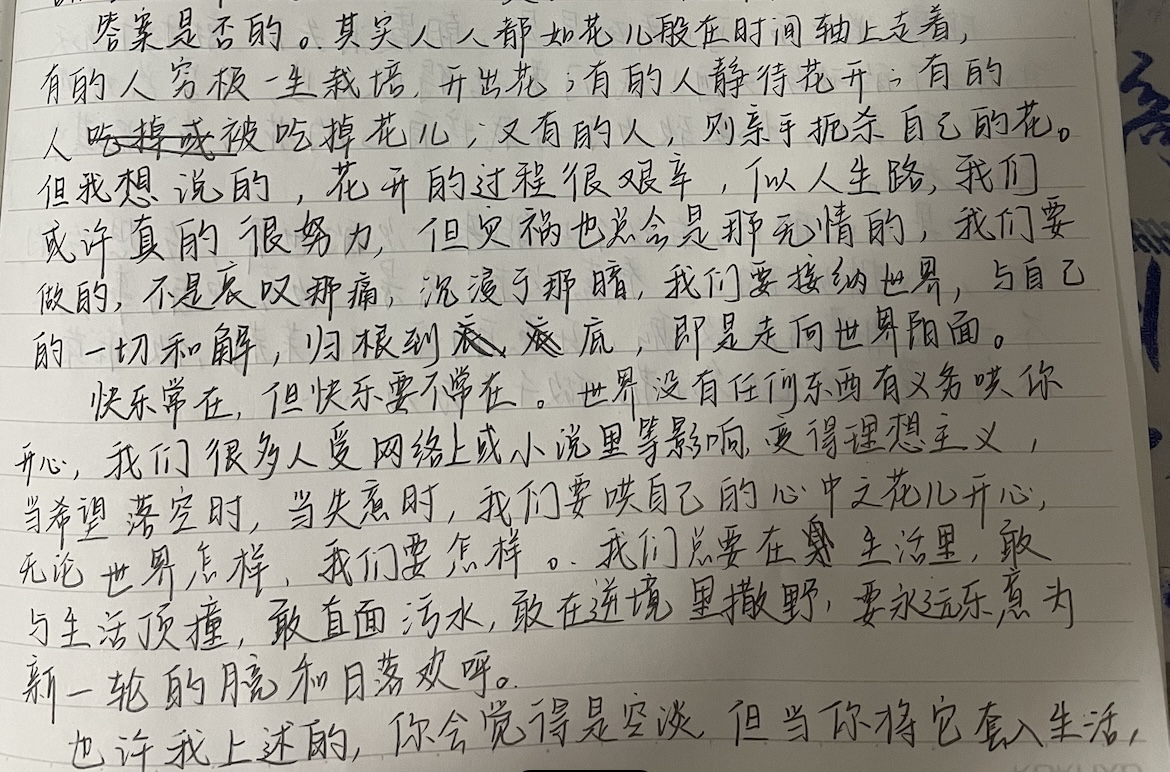 答案是否的。其实人人都如花儿般在时间轴上走着,
有的人穷极一生栽培,开出花;有的人静待花开;有的
人吃掉或被吃掉花儿;又有的人,则亲手扼杀自己的花。
但我想说的,花开的过程很艰辛,似人生路,我们
或许真的很努力,但灾祸也总会是那无情的,我们要
做的,不是哀叹那痛,沉浸于那暗,我们要接纳世界,与自己
的一切和解,归根到底,即是走向世界阳面。
快乐常在,但快乐要不常在。世界没有任何东西有义务哄你
开心,我们很多人受网络上或小说里等影响,变得理想主义,
当希望落空时,当失意时,我们要哄自己的心中之花儿开心,
无论世界怎样,我们要怎样。我们总要在生活里,敢
与生活顶撞,敢直面污水,敢在逆境里撒野,要永远乐意为
新一轮的月亮和日落欢呼。
也许我上述的,你会觉得是空谈,但当你将它套入生活,